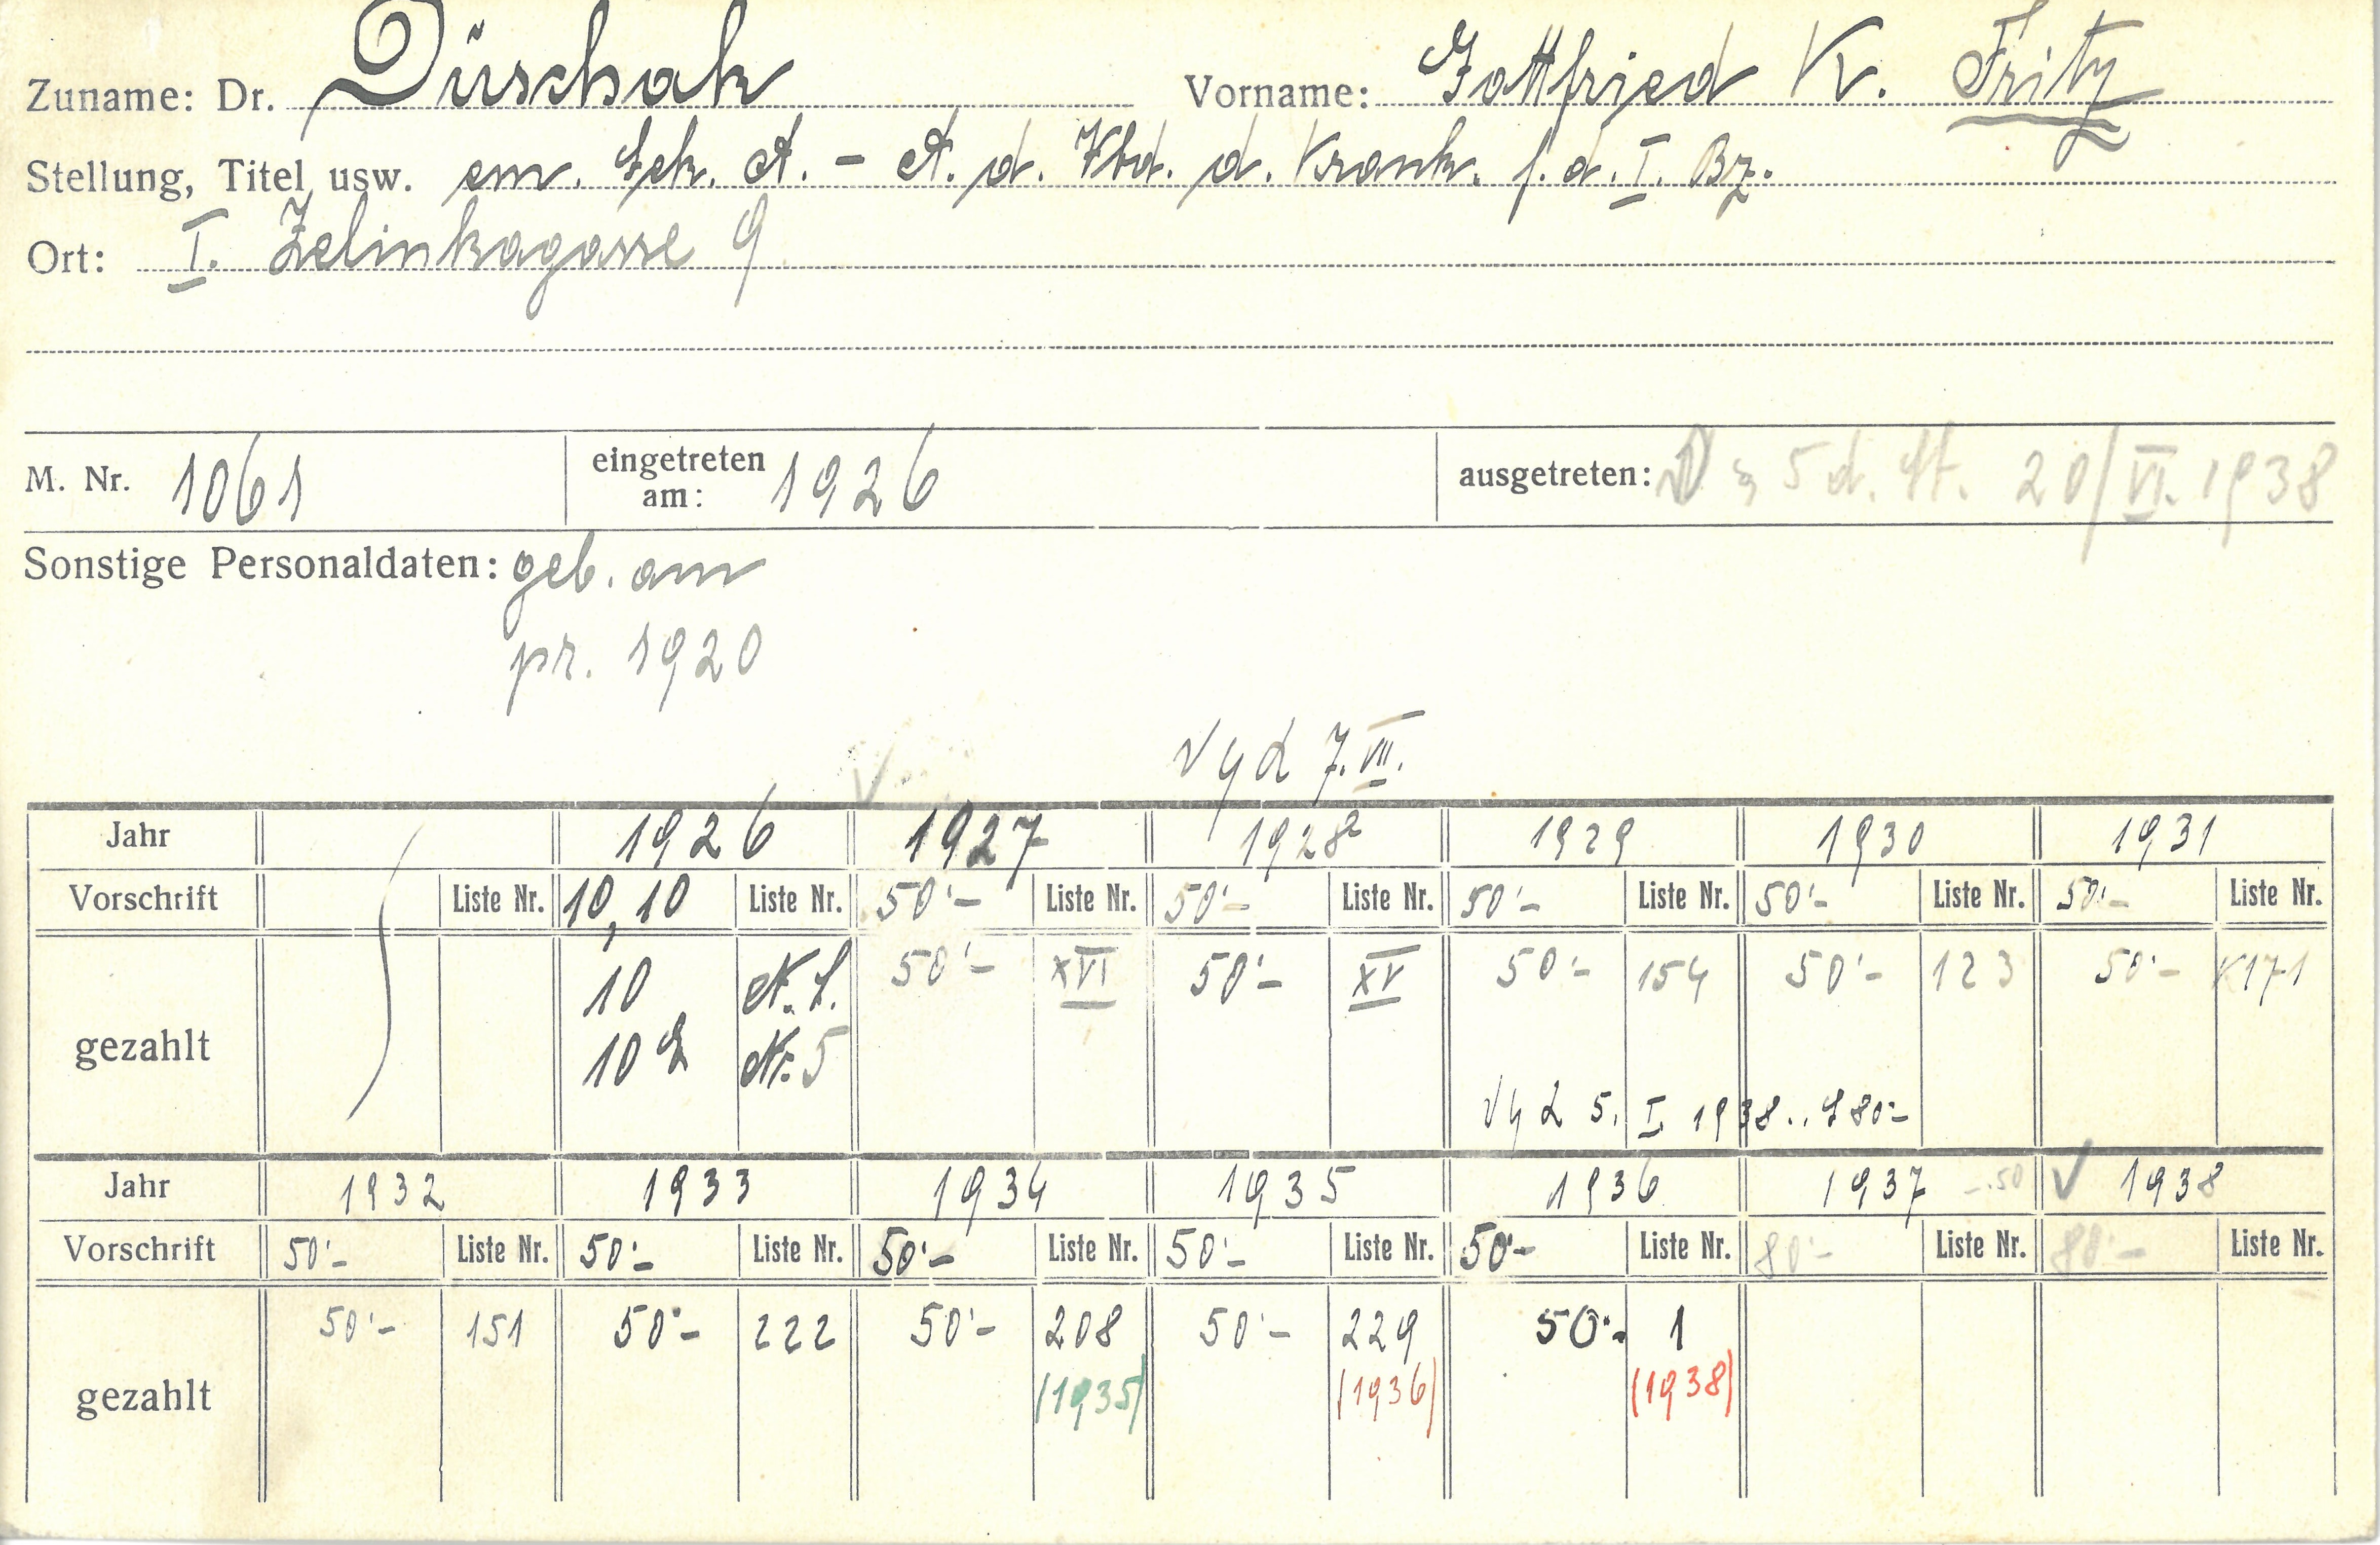 Zuname: Dr. Düschak Vorname: Gottfried K. Fritz
Stellung, Titel usw. em. Sek. A. - A. d. Vbd. d. Krank. f. d. I. Bz.
Ort: I. Zelinkagasse 9
M. Nr. 1061 eingetreten am: 1926 ausgetreten: 5 d. St. 20/VI. 1938
Sonstige Personaldaten: geb. am
pr. 1920
7. VII.
Jahr 1926 1927 1928 1929 1930 1931
Vorschrift Liste Nr. 10,10 Liste Nr. 50'- Liste Nr. 50'- Liste Nr. 50'- Liste Nr. 50'- Liste Nr. 50'- Liste Nr.
gezahlt 10 50'- XVI 50'- XV 50'- 154 50'- 123 50'- K171
10 Nr. 5
5. I. 1938.. S 80'-
Jahr 1932 1933 1934 1935 1936 1937 -.50 √ 1938
Vorschrift 50'- Liste Nr. 50'- Liste Nr. 50'- Liste Nr. 50'- Liste Nr. 50'- Liste Nr. 80'- Liste Nr. 80'- Liste Nr.
gezahlt 50'- 151 50'- 222 50'- 208 50'- 229 50'- 1
(1935) (1936) (1938)